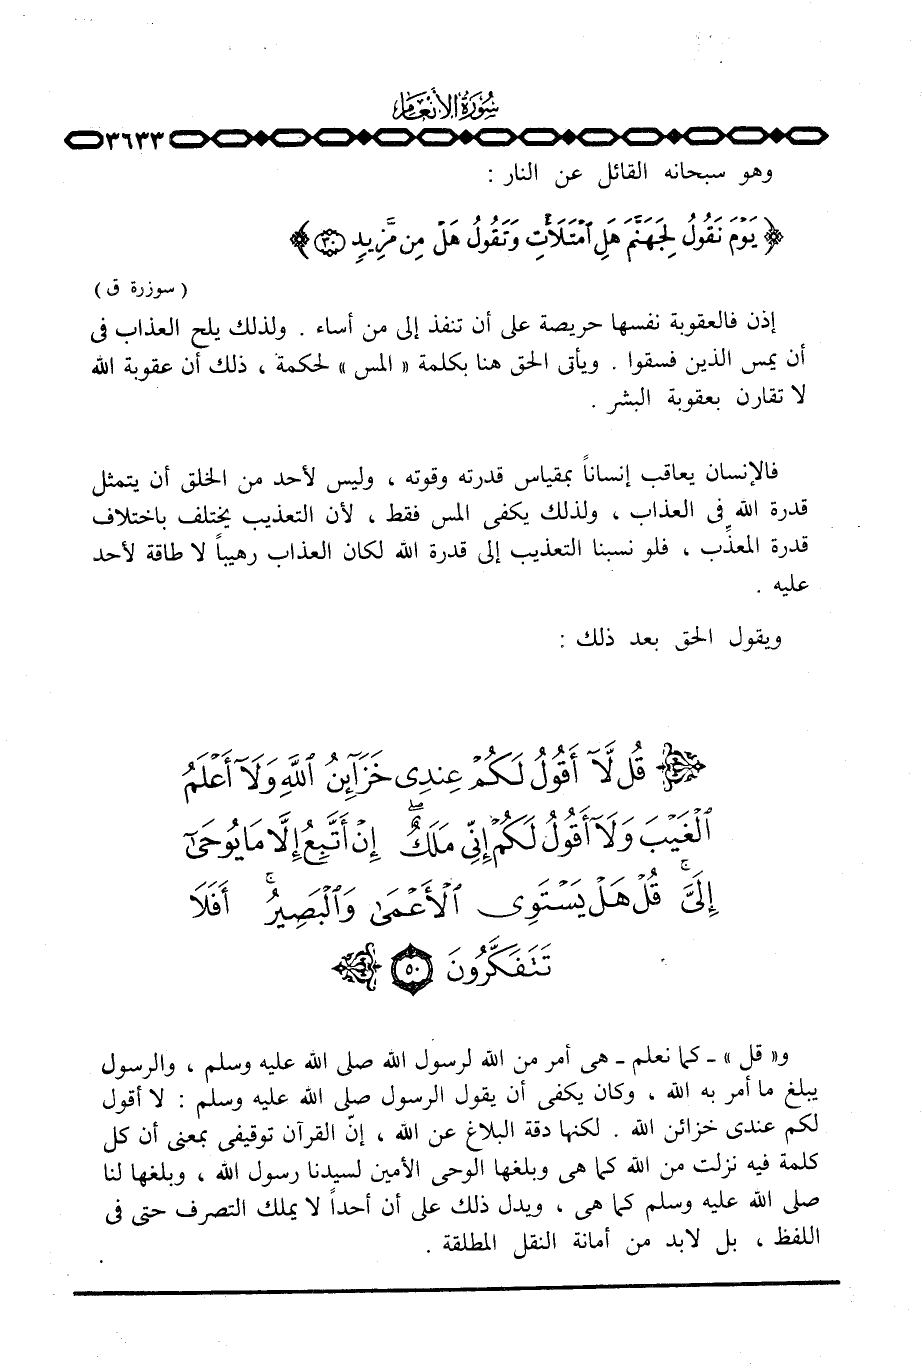 سُورَةُ الأَنْعَامِ
٣٦٣٣
وهو سبحانه القائل عن النار :
﴿ يَوْمَ نَقُولُ لِجَهَنَّمَ هَلِ ٱمْتَلَأْتِ وَتَقُولُ هَلْ مِن مَّزِيدٍ ﴿٣٠﴾ ﴾
( سوزرة ق )
إذن فالعقوبة نفسها حريصة على أن تنفذ إلى من أساء . ولذلك يلح العذاب فى
أن يمس الذين فسقوا . ويأتى الحق هنا بكلمة « المس » لحكمة ، ذلك أن عقوبة الله
لا تقارن بعقوبة البشر .
فالإنسان يعاقب إنساناً بمقياس قدرته وقوته ، وليس لأحد من الخلق أن يتمثل
قدرة الله فى العذاب ، ولذلك يكفى المس فقط ، لأن التعذيب يختلف باختلاف
قدرة المعذِّب ، فلو نسبنا التعذيب إلى قدرة الله لكان العذاب رهيباً لا طاقة لأحد
عليه .
ويقول الحق بعد ذلك :
﴿ قُل لَّآ أَقُولُ لَكُمْ عِندِى خَزَآئِنُ ٱللَّهِ وَلَآ أَعْلَمُ
ٱلْغَيْبَ وَلَآ أَقُولُ لَكُمْ إِنِّى مَلَكٌ ۖ إِنْ أَتَّبِعُ إِلَّا مَا يُوحَىٰٓ
إِلَىَّ ۚ قُلْ هَلْ يَسْتَوِى ٱلْأَعْمَىٰ وَٱلْبَصِيرُ ۚ أَفَلَا
تَتَفَكَّرُونَ ﴿٥٠﴾ ﴾
و« قل » ـ كما نعلم ـ هى أمر من الله لرسول الله صلى الله عليه وسلم ، والرسول
يبلغ ما أمر به الله ، وكان يكفى أن يقول الرسول صلى الله عليه وسلم : لا أقول
لكم عندى خزائن الله . لكنها دقة البلاغ عن الله ، إنّ القرآن توقيفى بمعنى أن كل
كلمة فيه نزلت من الله كما هى وبلغها الوحى الأمين لسيدنا رسول الله ، وبلغها لنا
صلى الله عليه وسلم كما هى ، ويدل ذلك على أن أحداً لا يملك التصرف حتى فى
اللفظ ، بل لابد من أمانة النقل المطلقة .